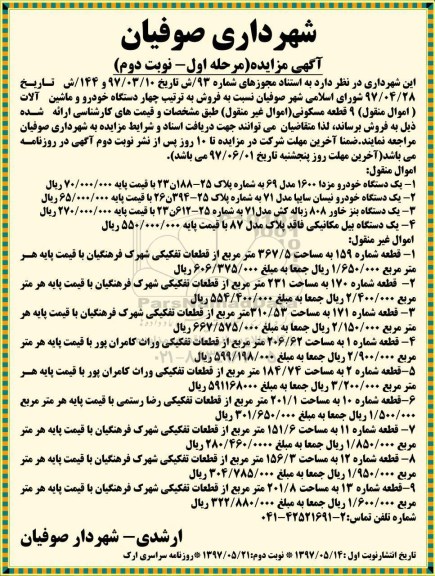 شهرداری صوفیان
آگهی مزایده(مرحله اول- نوبت دوم)
این شهرداری در نظر دارد به استناد مجوزهای شماره ۹۳/ش تاریخ ۹۷/۰۳/۱۰ و ۱۴۴/ش تاریخ
۹۷/۰۴/۲۸ شورای اسلامی شهر صوفیان نسبت به فروش به ترتیب چهار دستگاه خودرو و ماشین آلات
( اموال منقول) ۹ قطعه مسکونی(اموال غیر منقول) طبق مشخصات و قیمت های کارشناسی ارائه شده
ذیل به فروش برساند، لذا متقاضیان می توانند جهت دریافت اسناد و شرایط مزایده به شهرداری صوفیان
مراجعه نمایند.ضمنا آخرین مهلت شرکت در مزایده تا ۱۰ روز پس از نشر نوبت دوم آگهی در روزنامه
می باشد(آخرین مهلت روز پنجشنبه تاریخ ۹۷/۰۶/۰۱ می باشد).
اموال منقول:
۱- یک دستگاه خودرو مزدا ۱۶۰۰ مدل ۶۹ به شماره پلاک ۲۵-۱۸۸ن۲۳ با قیمت پایه ۷۰/۰۰۰/۰۰۰ ریال
۲- یک دستگاه خودرو نیسان سایپا مدل ۷۱ به شماره پلاک ۲۵-۳۹۴ن۲۶ با قیمت پایه ۶۵/۰۰۰/۰۰۰ ریال
۳- یک دستگاه بنز خاور ۸۰۸ زباله کش مدل۷۱ به شماره ۲۵-۶۱۲ن۲۳ با قیمت پایه ۲۷۰/۰۰۰/۰۰۰ ریال
۴- یک دستگاه بیل مکانیکی فاقد پلاک مدل ۸۷ با قیمت پایه ۵۵۰/۰۰۰/۰۰۰ ریال
اموال غیر منقول:
۱- قطعه شماره ۱۵۹ به مساحت ۳۶۷/۵ متر مربع از قطعات تفکیکی شهرک فرهنگیان با قیمت پایه هر
متر مربع ۱/۶۵۰/۰۰۰ ریال جمعا به مبلغ ۶۰۶/۳۷۵/۰۰۰ ریال
۲- قطعه شماره ۱۷۰ به مساحت ۲۳۱ متر مربع از قطعات تفکیکی شهرک فرهنگیان با قیمت پایه هر متر
مربع ۲/۴۰۰/۰۰۰ ریال جمعا به مبلغ ۵۵۴/۴۰۰/۰۰۰ ریال
۳- قطعه شماره ۱۷۱ به مساحت ۳۱۰/۵۳ متر مربع از قطعات تفکیکی شهرک فرهنگیان با قیمت پایه هر
متر مربع ۲/۱۵۰/۰۰۰ ریال جمعا به مبلغ ۶۶۷/۵۷۵/۰۰۰ ریال
۴- قطعه شماره ۱ به مساحت ۲۰۶/۶۲ متر مربع از قطعات تفکیکی وراث کامران پور با قیمت پایه هر متر
مربع ۲/۹۰۰/۰۰۰ ریال جمعا به مبلغ ۵۹۹/۱۹۸/۰۰۰ ریال
۵- قطعه شماره ۲ به مساحت ۱۸۴/۷۴ متر مربع از قطعات تفکیکی وراث کامران پور با قیمت پایه هر
متر مربع ۳/۲۰۰/۰۰۰ ریال جمعا به مبلغ ۵۹۱۱۶۸۰۰۰ ریال
۶- قطعه شماره ۱۰ به مساحت ۲۰۱/۱ متر مربع از قطعات تفکیکی رضا رستمی با قیمت پایه هر متر مربع
۱/۵۰۰/۰۰۰ ریال جمعا به مبلغ ۳۰۱/۶۵۰/۰۰۰ ریال
۷- قطعه شماره ۱۱ به مساحت ۱۵۱/۶ متر مربع از قطعات تفکیکی شهرک فرهنگیان با قیمت پایه هر متر
مربع ۱/۸۵۰/۰۰۰ ریال جمعا به مبلغ ۲۸۰/۴۶۰/۰۰۰۰ ریال
۸- قطعه شماره ۱۲ به مساحت ۱۵۶/۳ متر مربع از قطعات تفکیکی شهرک فرهنگیان با قیمت پایه هر متر
مربع ۱/۹۵۰/۰۰۰ ریال جمعا به مبلغ ۳۰۴/۷۸۵/۰۰۰ ریال
۹- قطعه شماره ۱۳ به مساحت ۲۰۱/۸ متر مربع از قطعات تفکیکی شهرک فرهنگیان با قیمت پایه هر متر
مربع ۱/۶۰۰/۰۰۰ ریال جمعا به مبلغ ۳۲۲/۸۸۰/۰۰۰ ریال
شماره تلفن تماس:۲-۴۲۵۲۱۶۹۱-۰۴۱
ارشدی- شهردار صوفیان
تاریخ انتشارنوبت اول :۱۳۹۷/۰۵/۱۴ * نوبت دوم:۱۳۹۷/۰۵/۲۱ *روزنامه سراسری ارک